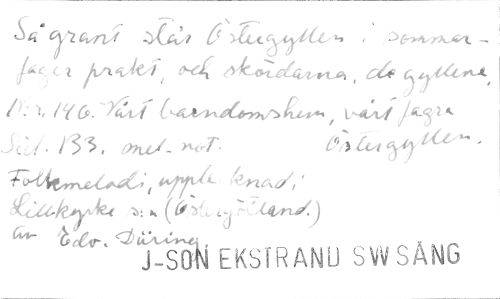 Så grant står Östergyllen i sommar-
fager prakt, och skördarna, de gyllene,
N:r. 140. Vårt barndomshem, vårt fagra
Sid. 133. mel. not. Östergyllen.
Folkmelodi, upptecknad i
Lillkyrka s:n (Östergötland)
av Edv. Düring.
J-SON EKSTRAND SW SÅNG